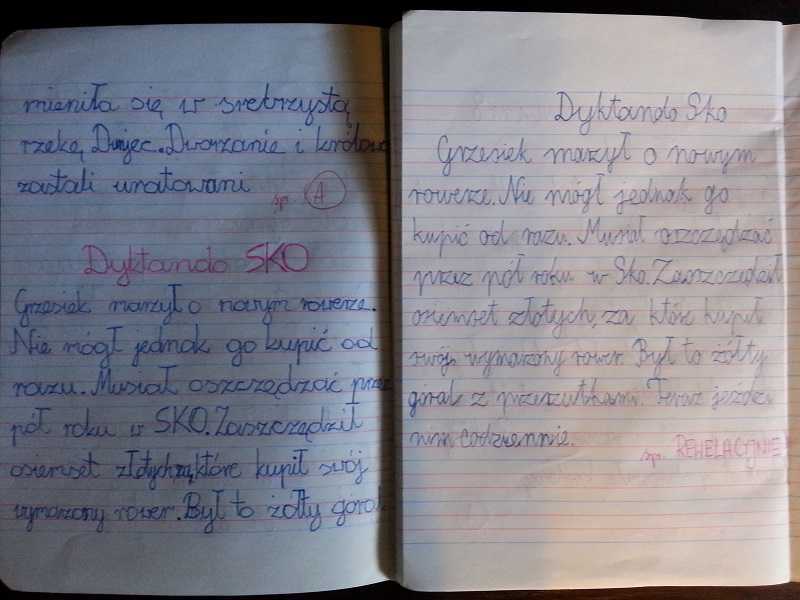 mieniła się w srebrzystą
rzekę Dunjec. Dworzanie i królowa
zostali uratowani
sp. A
Dyktando SKO
Grzesiek marzył o nowym rowerze.
Nie mógł jednak go kupić od
razu. Musiał oszczędzać przez
pół roku w SKO. Zaszczędził
osiemset złotych, za które kupił swój
wymarzony rower. Był to żółty góral
Dyktando Sko
Grzesiek marzył o nowym
rowerze. Nie mógł jednak go
kupić od razu. Musiał oszczędzać
przez pół roku w Sko. Zaszczędził
osiemset złotych, za które kupił
swój wymarzony rower. Był to żółty
góral z przerzutkami. Teraz jeździ
nim codziennie.
sp. REWELACYJNIE